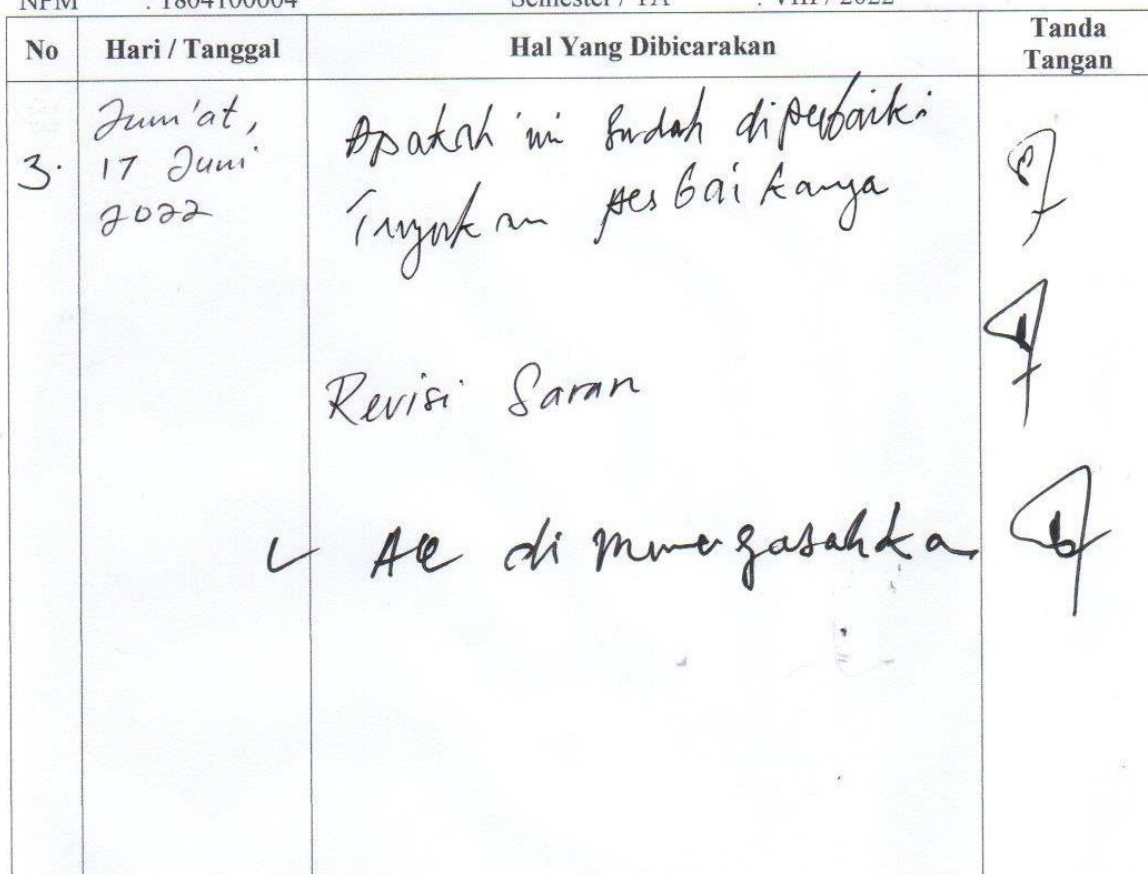 NPM : 1804100004 Semester / TA : VIII / 2022
No Hari / Tanggal Hal Yang Dibicarakan Tanda Tangan
3. Jum'at, 17 Juni 2022
Apakah ini sudah diperbaiki
Tunjukan perbaikanya
Revisi Saran
Acc di